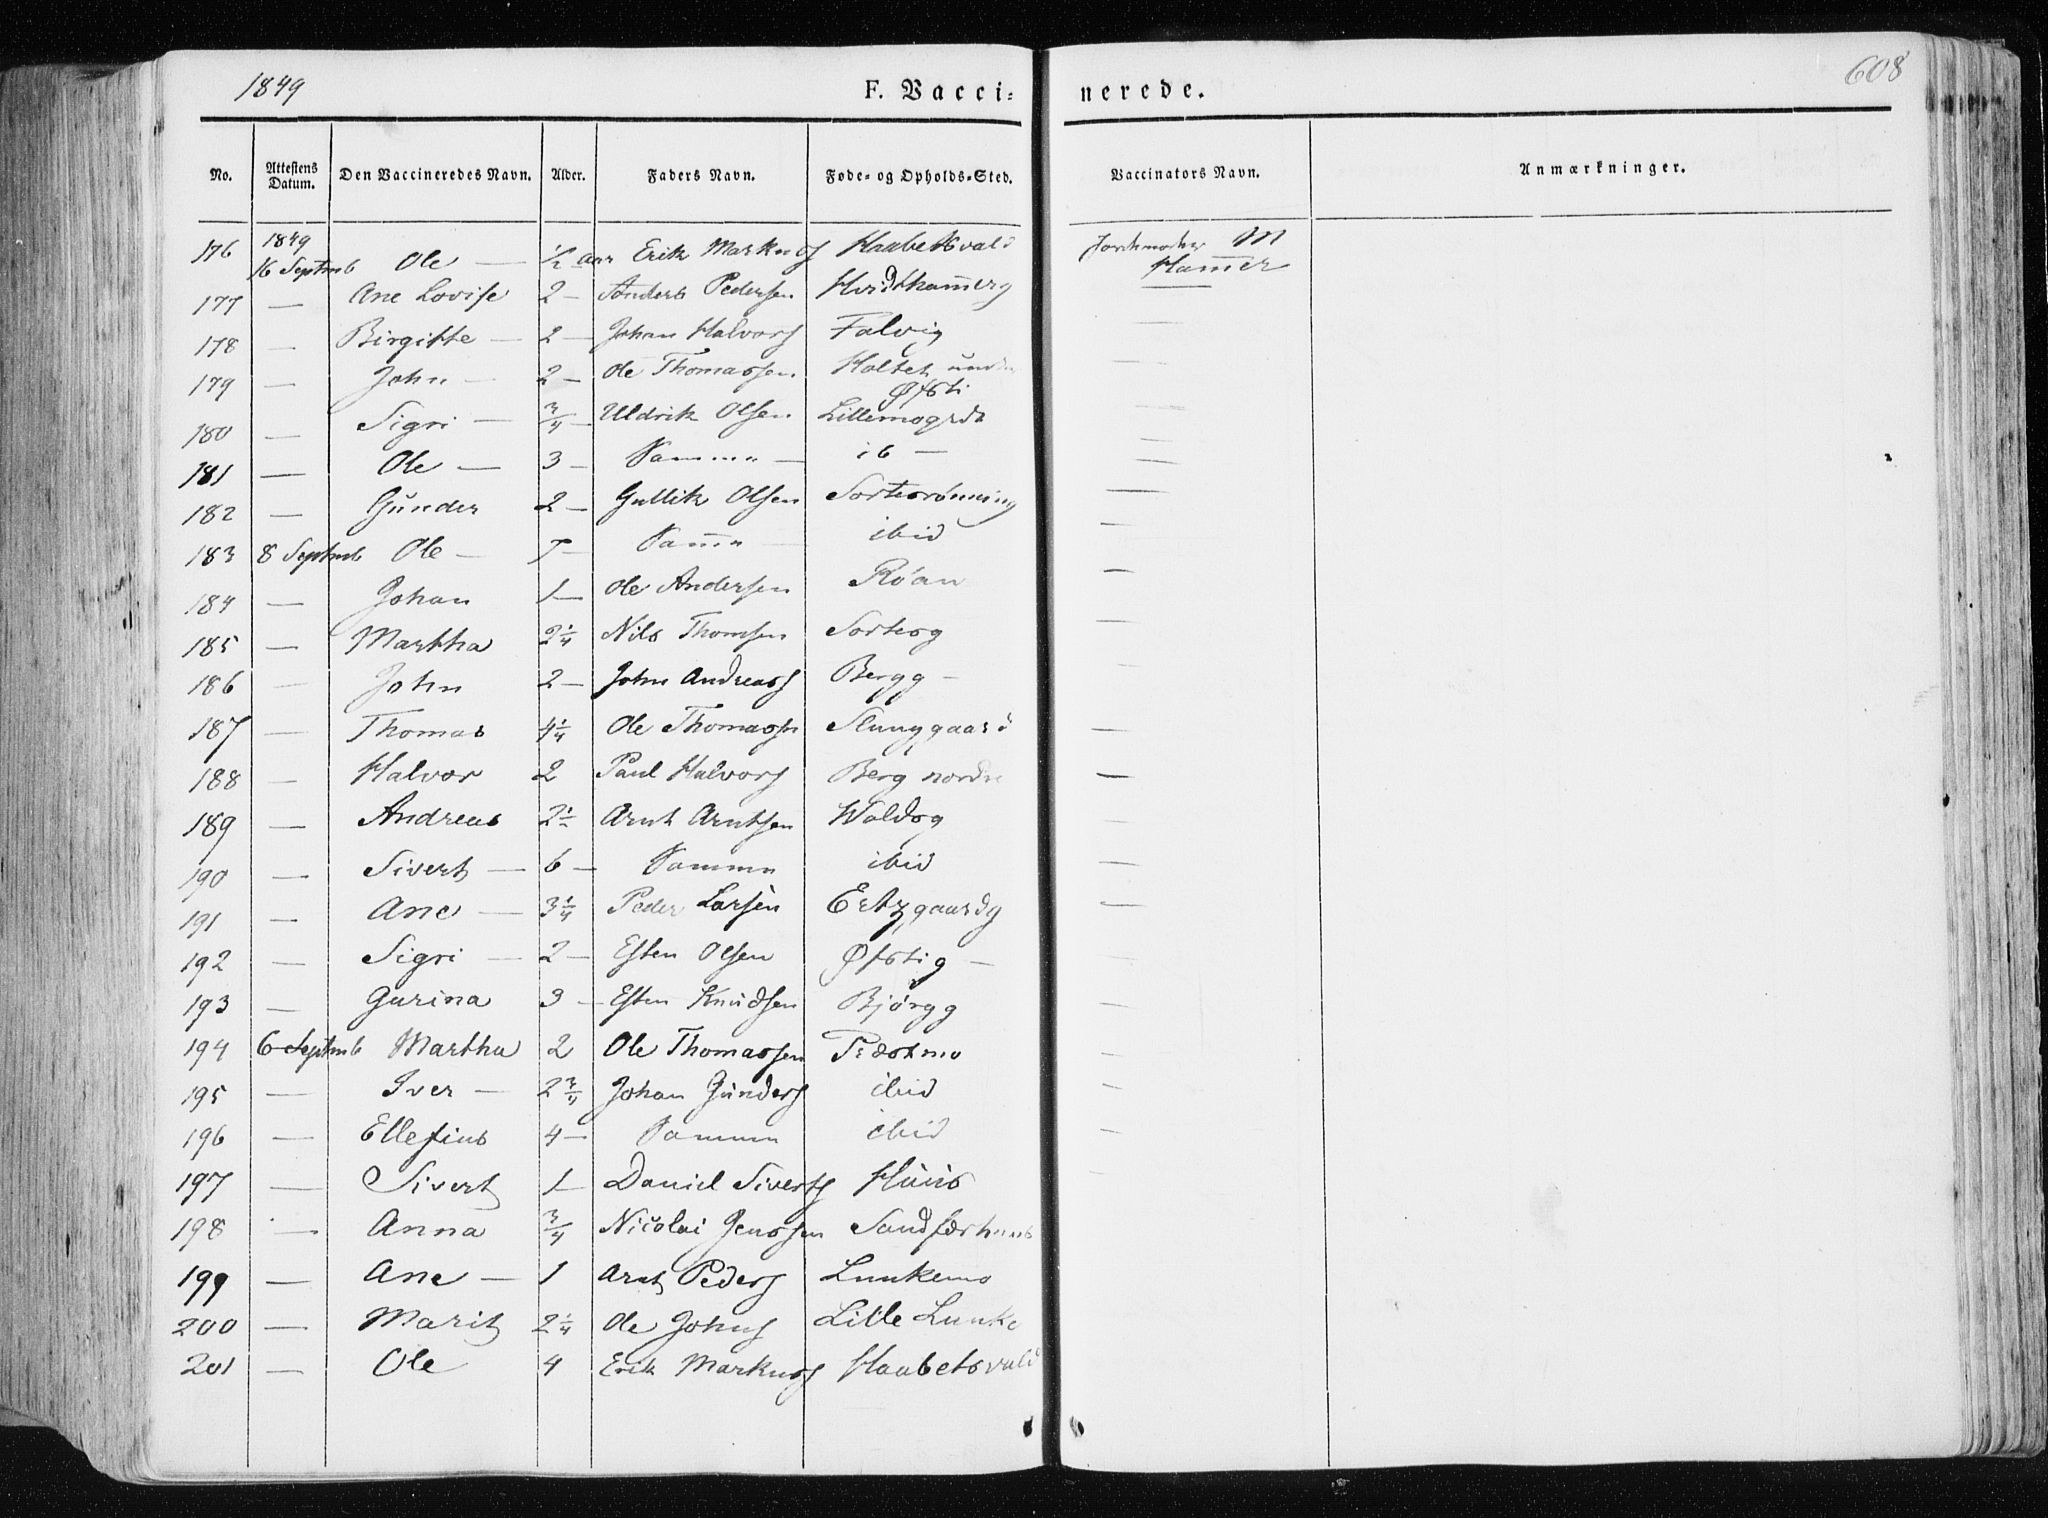 1849 F. Vacci: nerede. 608
No. Attestens Datum. Den Vaccineredes Navn. Alder. Faders Navn. Føde- og Opholds-Sted. Vaccinators Navn. Anmærkninger.
176 1849 16 Septmb Ole — ½ aar Erik Markusf Haabetsvald Jordmoder M Ham̄er
177 — Ane Lovise 2 — Anders Pedersen Hvidtham̄erg —
178 — Birgitte — 2 — Johan Halvorsf Falvig —
179 — John — 2 — Ole Thomassen Holtet under Øfsti —
180 — Sigri — ¾ — Uldrik Olsen —
181 — Ole — 3 — Samme — ib — —
182 — Gunder 2 — Gullik Olsen Sorterønning —
183 8 Septmb Ole — 7 — Sam̄e — ibid —
184 — Johan 1 — Ole Andersen Røan —
185 — Martha 2¼ Nils Thomsen Sorteog —
186 — John 2 — John Andreasf Bergg — —
187 — Thomas 4¼ Ole Thomassn Slunggaard —
188 — Halvor 2 Paul Halvorsf Berg nordre —
189 — Andreas 2½ Arnt Arntsen Woldog —
190 — Sivert — 6 — Samme ibid —
191 — Ane — 3¼ Peder Larsen Ertzgaardg —
192 — Sigri — 2 — Esten Olsen Øfstig — —
193 — Gurina 3 — Esten Knudsen Bjørgg —
194 6 Septmb Martha 2 Ole Thomassen —
195 — Iver — 2¾ Johan Gundersf ibid —
196 — Ellefius 4 — Samme ibid —
197 — Sivert 1 — Daniel Sivertsf Huus —
198 — Anna ¾ Nicolai Jenssen Sandfærhuus
199 — Ane — 1 Arnt Pedersf Lunkemo
200 — Marit 2¼ Ole Johnsf Lille Lunke
201 — Ole 4 Erik Markusf Haabetsvald